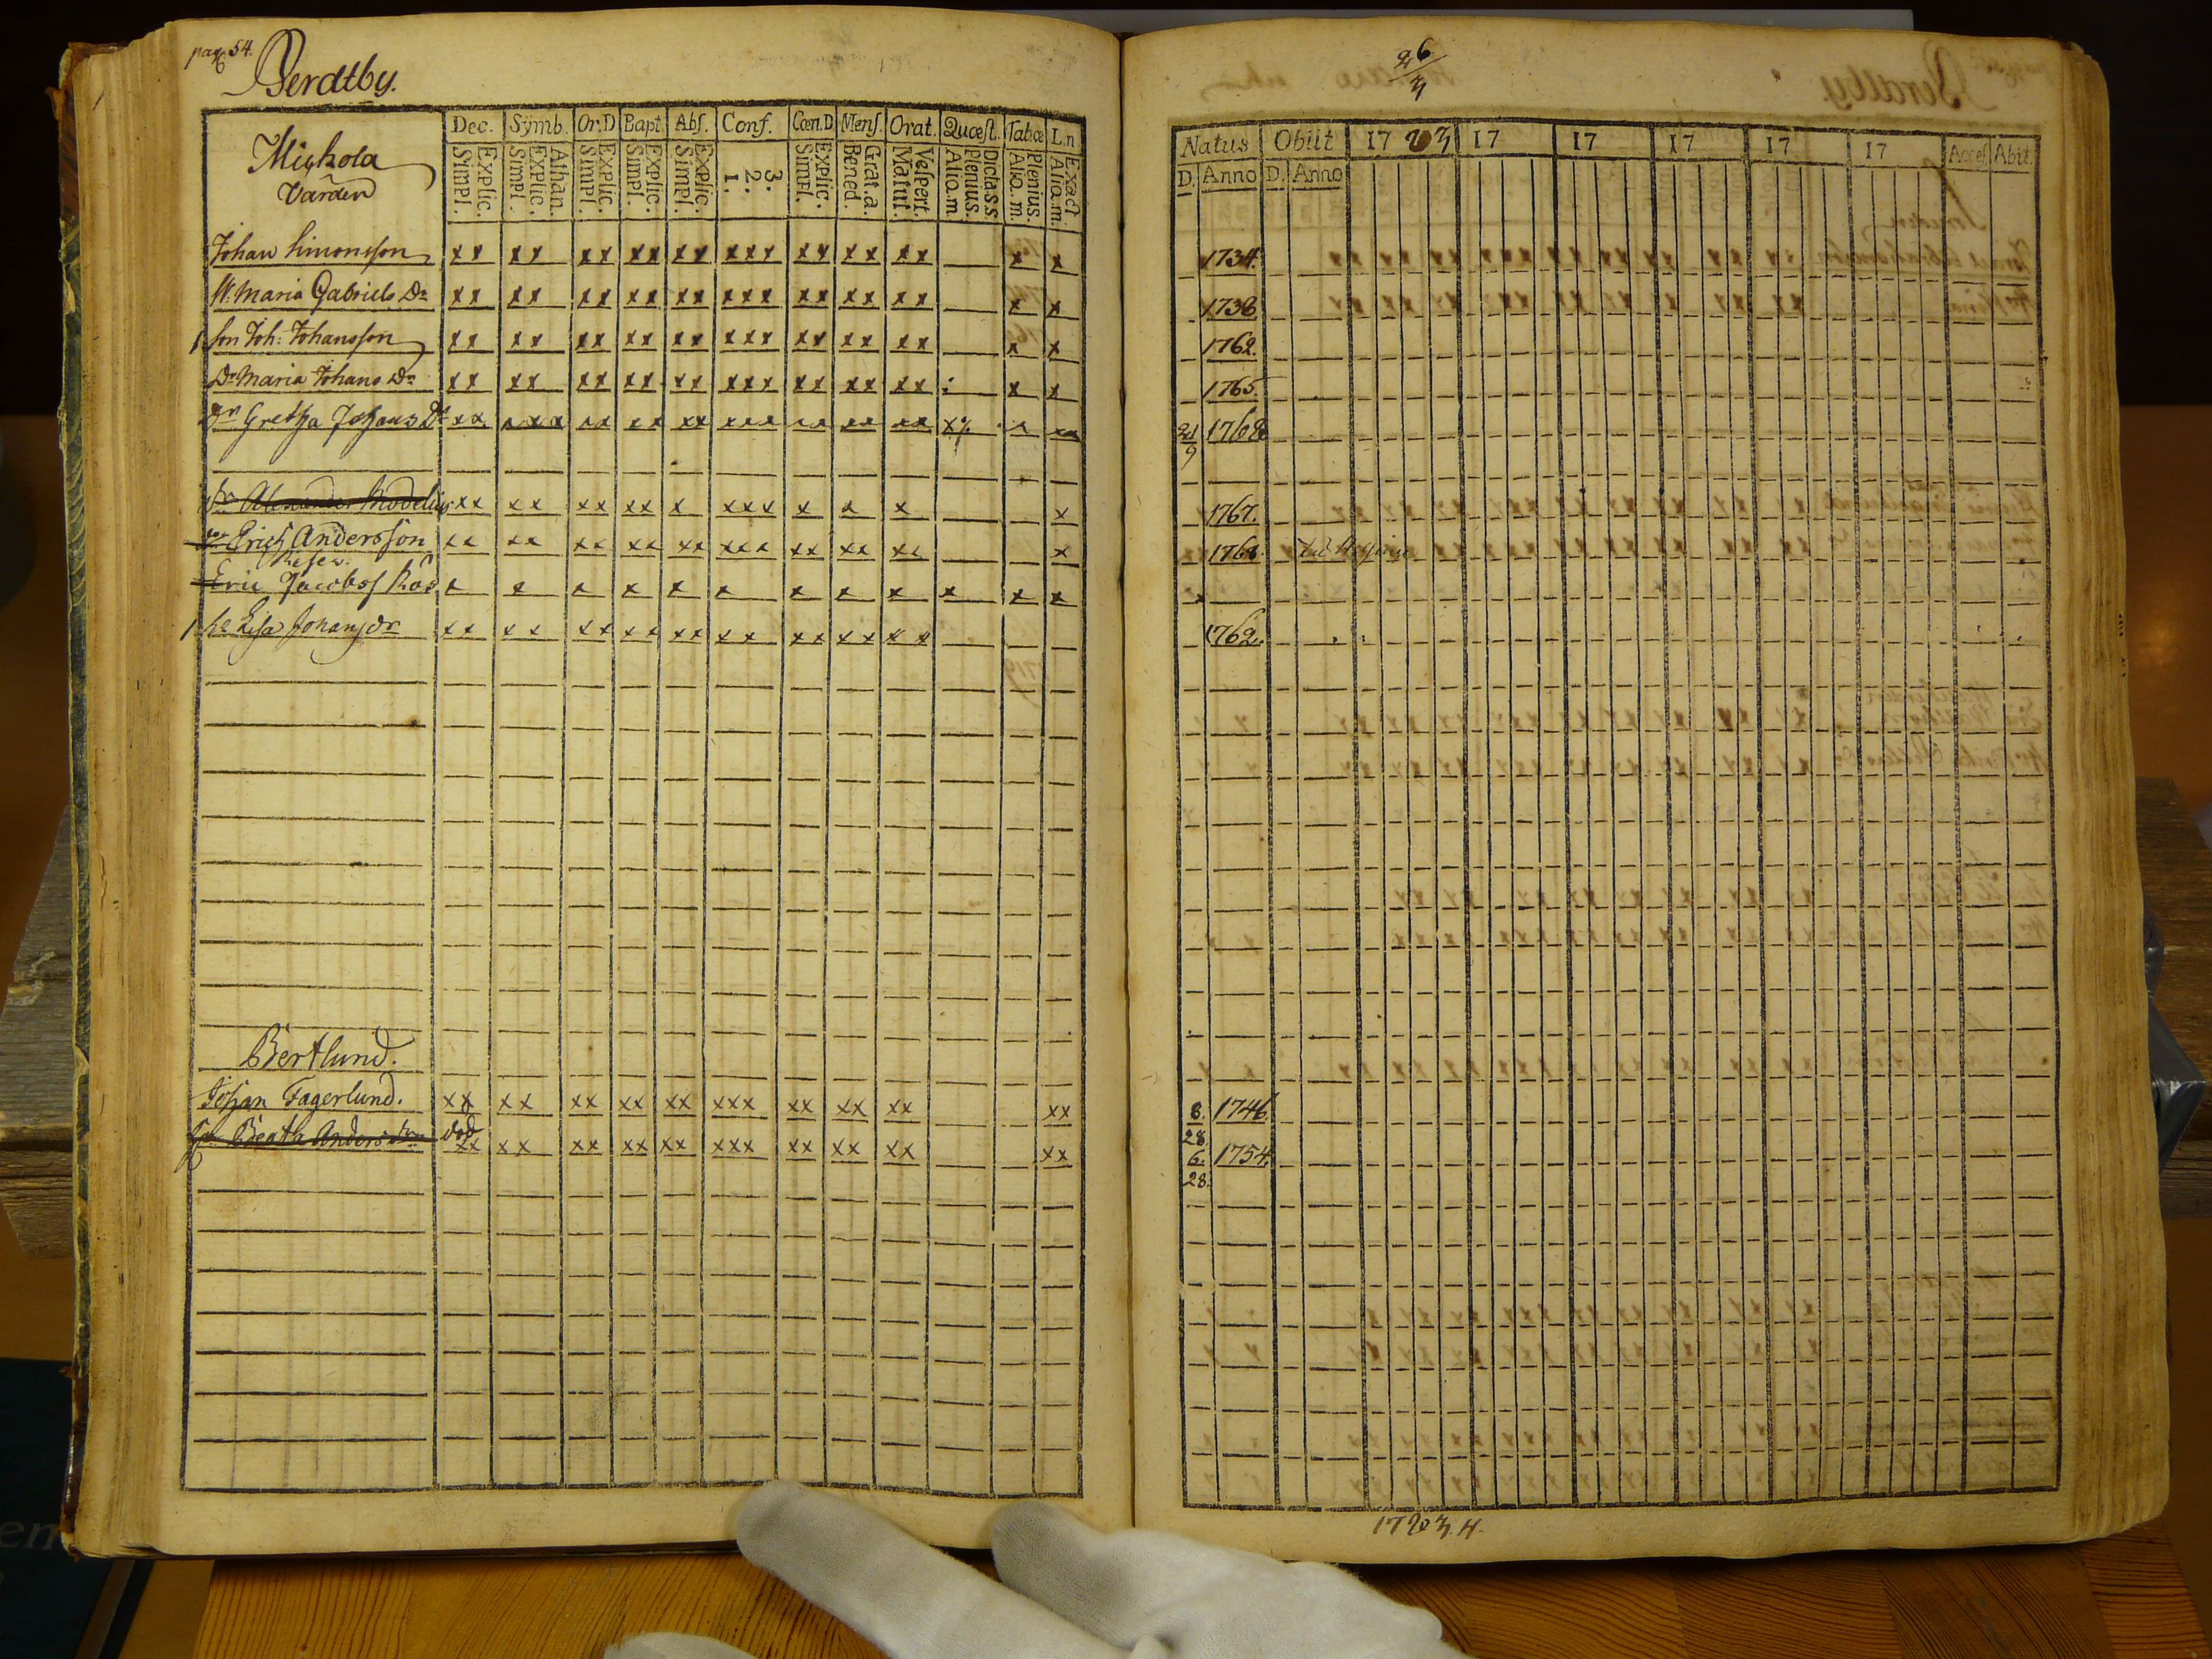 pag. 54.
Berdtby.
Dec. Sÿmb. Or.D Bapt. Abs. Conf. Cœn.D Mens. Orat. Quæst. Tab.œ L.n
Mickola
Värden
Explic. Simpl.
Athan. Explic. Simpl.
Explic. Simpl.
Explic. Simpl.
Explic. Simpl.
3. 2. 1.
Explic. Simpl.
Grat. a. Bened.
Vespert. Matut.
Dicta.s.s Plenius. Alio.m
Plenius. Alio.m.
Exact Alia.m.
Johan Simonsson xx xx xx xx xx xxx xx xx xx x x
H. Maria Gabriels Dr xx xx xx xx xx xxx xx xx xx x x
1 Son Joh: Johansson xx xx xx xx xx xxx xx xx xx x x
Dr Maria Johans Dr xx xx xx xx xx xxx xx xx xx x x
Dr Gretha Johans Dr xx xxx xx xx xx xxx xx xx xx x x xx
Dr Alexander Modelius xx xx xx xx x xxx x x x x
Erich Andersson xx xx xx xx xx xxx xx xx xx x
Eric Jacobss Ros x x x x x x x x x x x x
1 Lisa Johans dr xx xx xx xx xx xx xx xx xx
Bertlund.
Johan Fagerlund. xx xx xx xx xx xxx xx xx xx xx
Beata Anders dr död xx xx xx xx xx xxx xx xx xx xx
26/3
Natus Obiit 17 23 17 17 17 17 17 Acces. Abit.
D. Anno D. Anno
1734.
1738
1762.
1765.
21/9 1768
1767.
1768.
1762.
8. 1746
28.
6. 1754.
28.